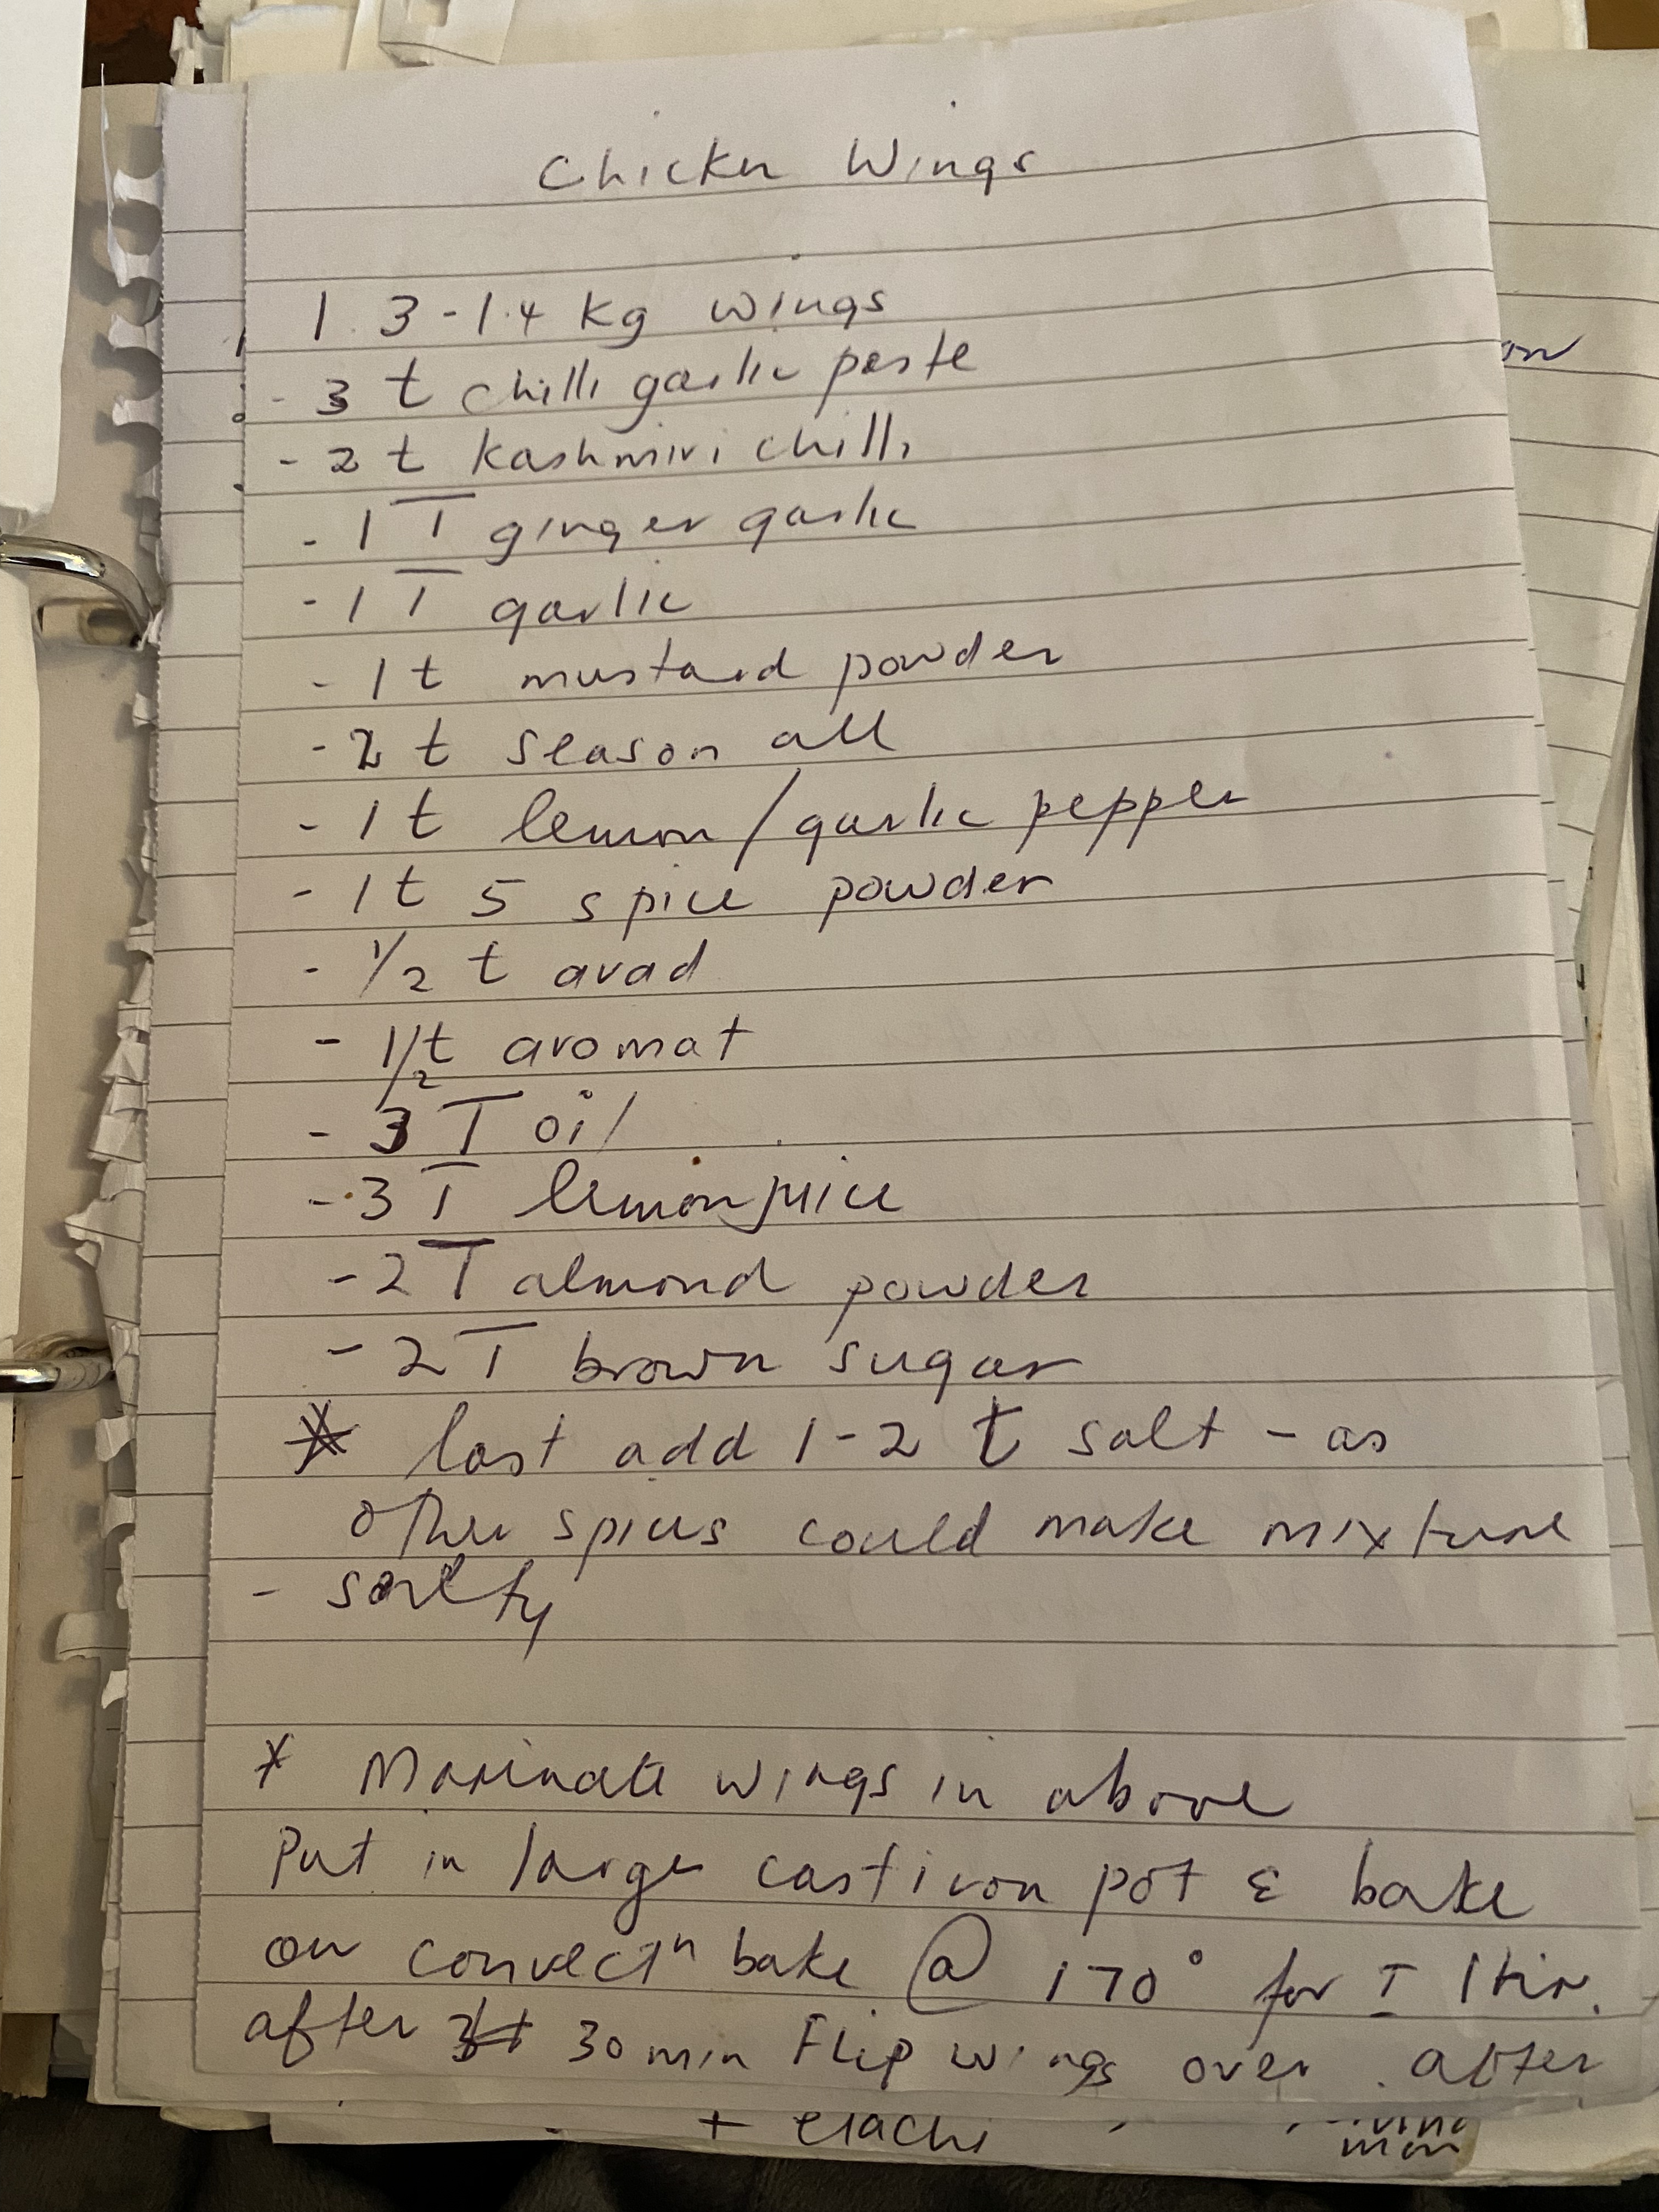 Chicken Wings
1.3-1.4 kg wings
- 3 t chilli garlic paste
- 2 t Kashmiri chilli
- 1 T ginger garlic
- 1 T garlic
- 1 t mustard powder
- 2 t season all
- 1 t lemon/garlic pepper
- 1 t 5 spice powder
- 1/2 t arad
- 1/2 t aromat
- 3 T oil
- 3 T lemon juice
- 2 T almond powder
- 2 T brown sugar
* last add 1-2 t salt - as
other spices could make mixture
- salty
* Marinate wings in above
Put in large cast iron pot & bake
on convectn bake @ 170° for ± 1 hr.
after 30 min Flip wings over. after
+ elachi